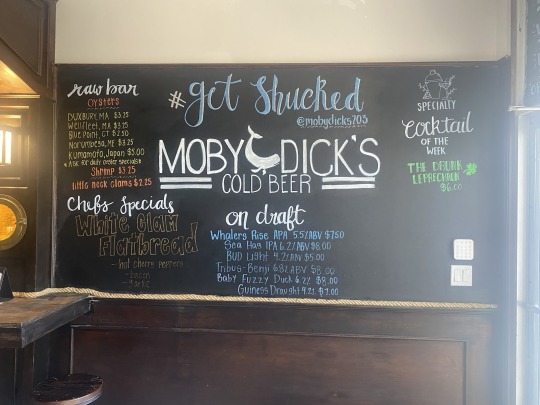 raw bar
OYSTERS
DUXBURY, MA $3.25
Wellfleet, MA $3.25
Blue Point, CT $2.50
Norumbega, ME $3.25
Kumamoto, Japan $5.00
* Ask for daily oyster specials*
Shrimp $3.25
little neck clams $2.25
Chefs Specials
White Clam
Flatbread
- hot cherry peppers
- bacon
- garlic
#get Shucked
@mobydicks203
MOBY DICK'S
COLD BEER
on draft
Whalers Rise APA 5.5% ABV $7.50
Sea Hag IPA 6.2% ABV $8.00
BUD Light 4.2% ABV $5.00
Tribus-Benji 6.8% ABV $8.00
Baby Fuzzy Duck 6.2% $8.00
Guiness Draught 4.2% $7.00
SPECIALTY
Cocktail
OF THE
WEEK
THE DRUNK
LEPRECHAUN
$6.00